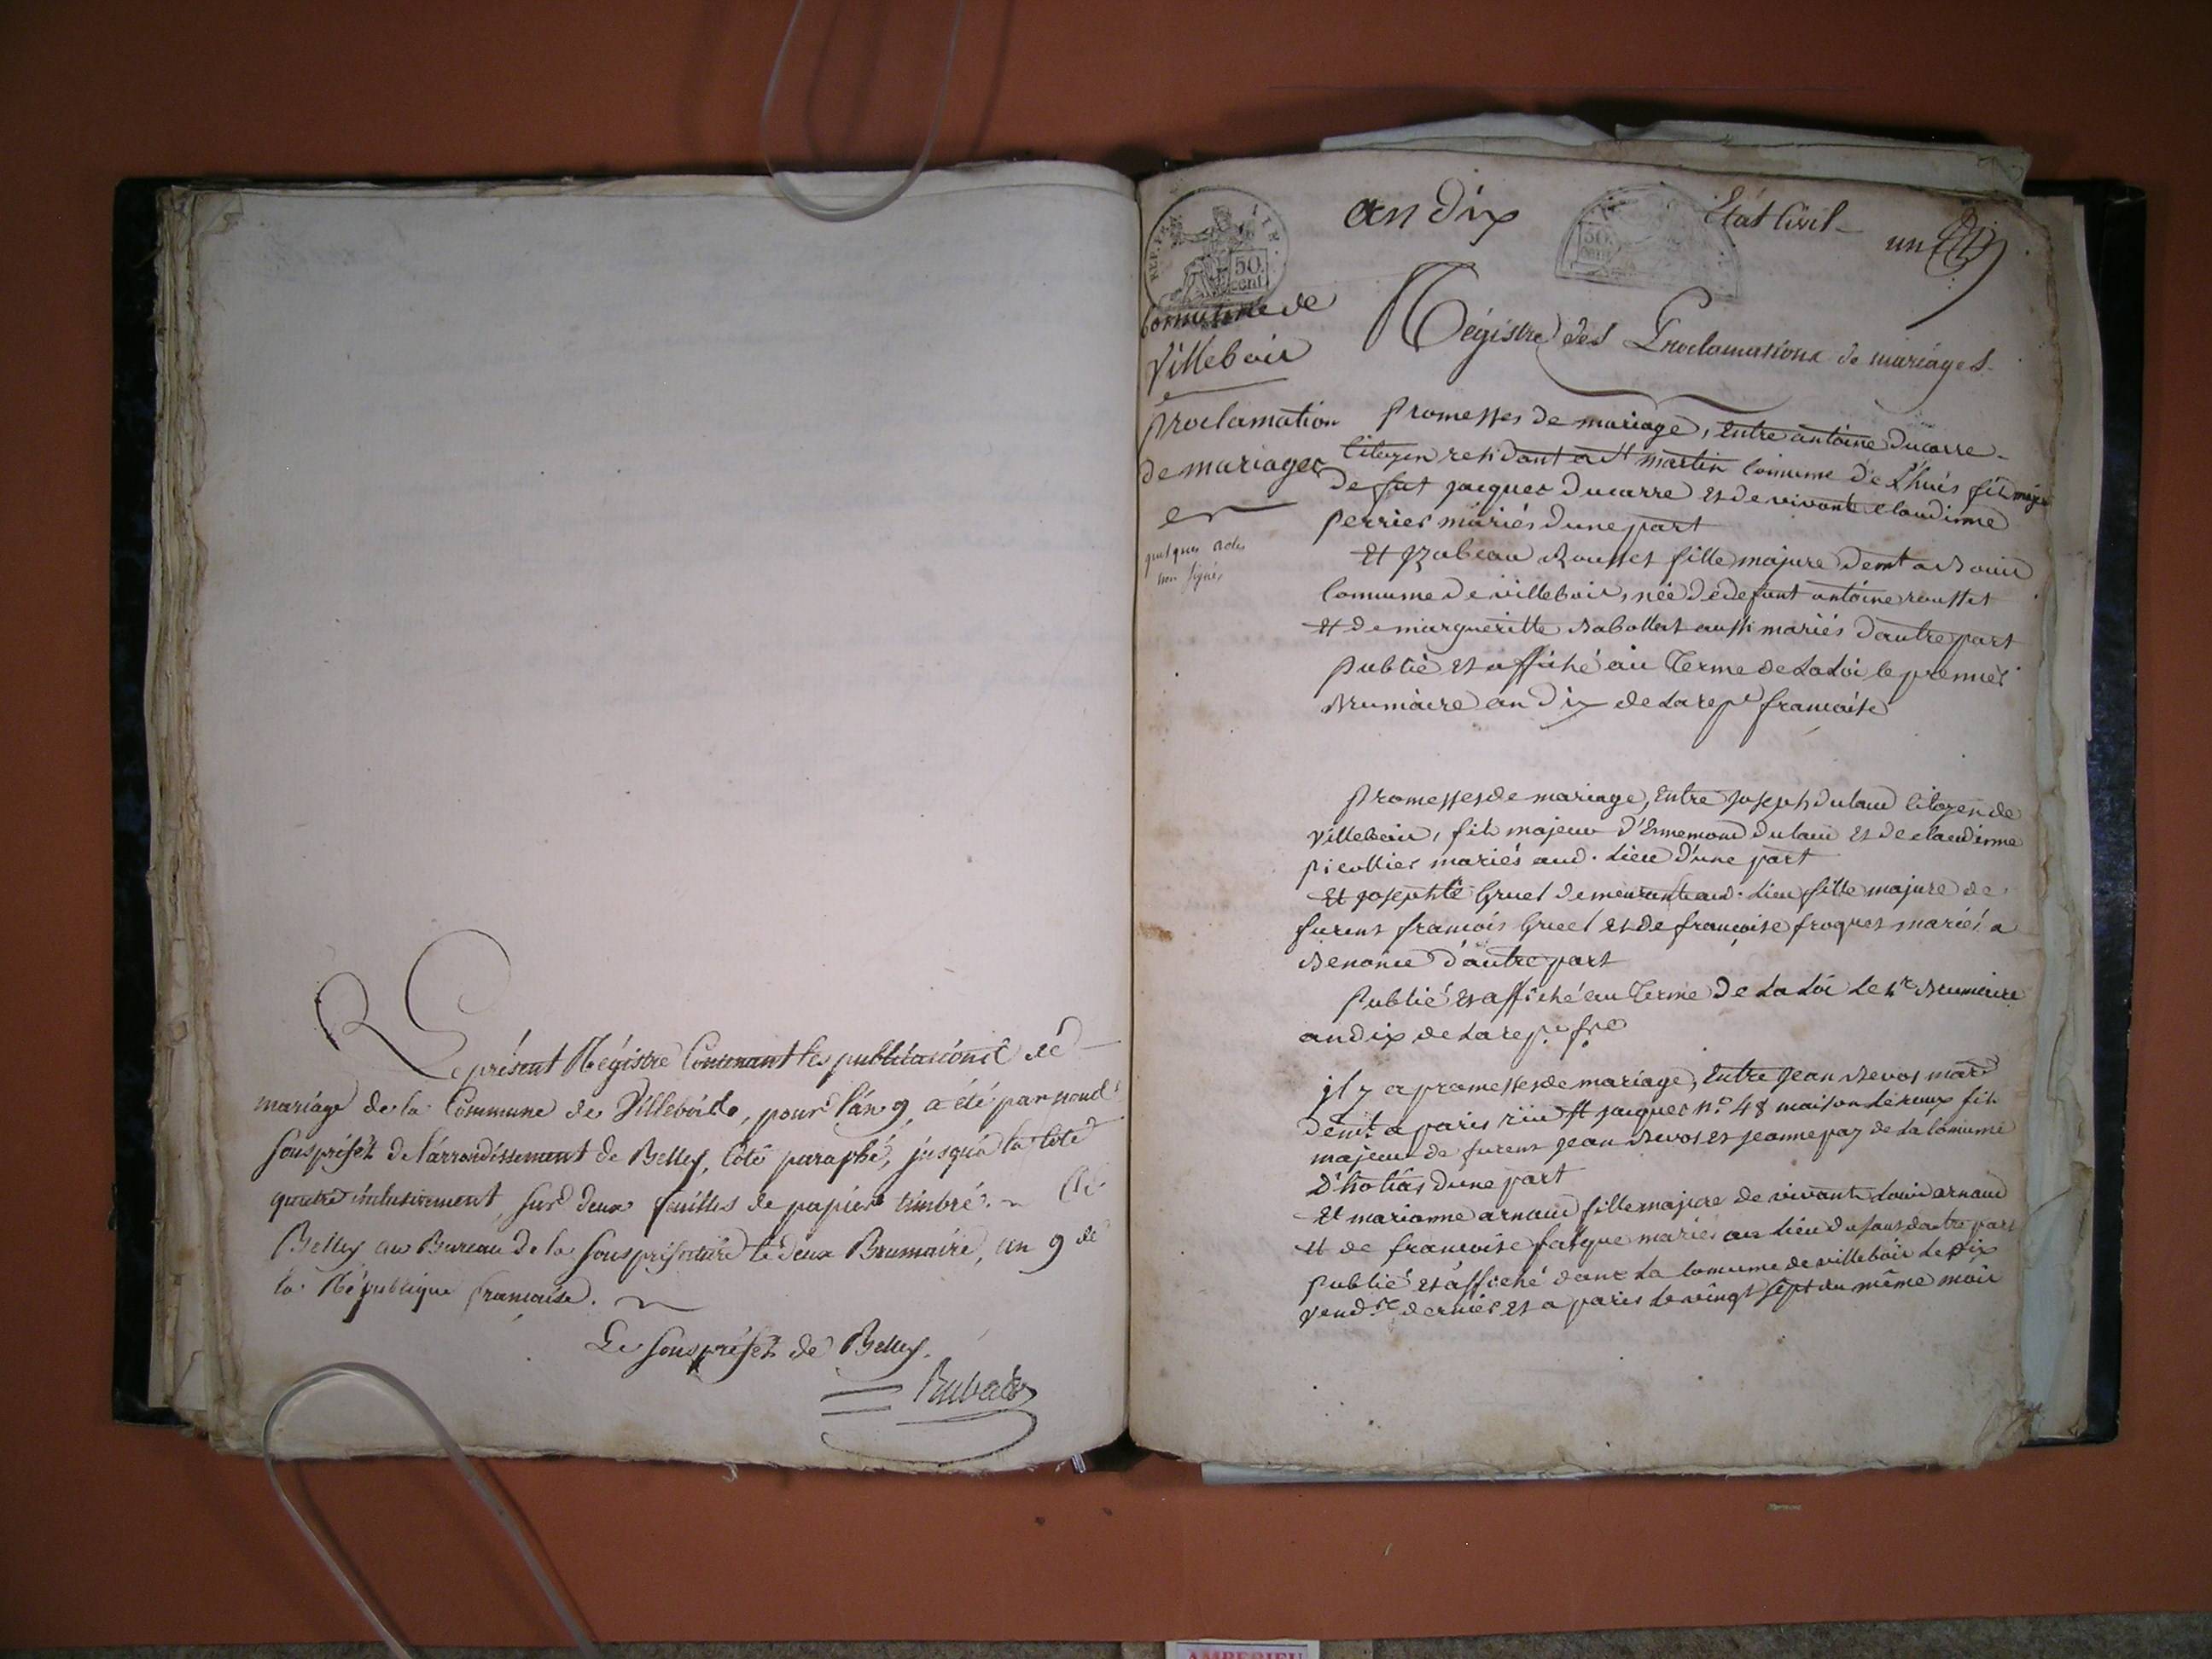 Le présent Régistre Contenant les publications de
mariage de la Commune de Villebois, pour l'an 9, a été par nous
souspréfet de l'arrondissement de Belley, côté paraphé, jusqu'à la côte
quatre inclusivement, sur deux feuilles de papier timbré. ~ A
Belley au Bureau de la souspréfecture le deux Brumaire, an 9 de
la République française.
Le souspréfet de Belley.
REP. FRA.
50
cent
an dix
50
Etat Civil
un
Commune de
Villebois
Proclamation
de mariages
quelques actes
non signés
Régistre des Proclamations de mariages
Promesses de mariage, Entre antoine Ducarre
Citoyen residant a St martin Commune de L'huis fils majeur
de fut jacques Ducarre et de vivante Claudinne
Perrier mariés dune part
Et Izabeau Rousset fille majure demt a Bouis
Commune de villebois, née de defunt antoine rousset
et de margueritte Babollat aussi mariés dautre part
Publié et affiché au Terme de La Loi le premier
Brumaire an dix de La repe francaise
Promesses de mariage, Entre joseph dulaud Citoyen de
Villebois, fils majeur d'Ennemond dulaud et de claudinne
Picollier mariés aud. Lieu d'une part
Et josephte Gruel demeurante aud. Lieu fille majure de
furent francois Gruel et de françoise froquet mariés a
Benonce d'autre part
Publié et affiché au Terme de La Loi Le 1er Brumaire
an dix de La rep. fse
jl y a promesses de mariage, Entre jean Bevos mard
demt a paris rüe St jacques n° 48 maison Leroux fils
majeur de furent jean Bevos et jeanne pay de La Commune
D'hotias dune part
Et marianne arnaud fille majure de vivants Louis arnaud
et de francoise falque mariés au Lieu du saut dautre part
Publié et affiché dans La Commune de villebois Le dix
vendre dernier et a paris Le vingt sept du même mois
AMBERIEU